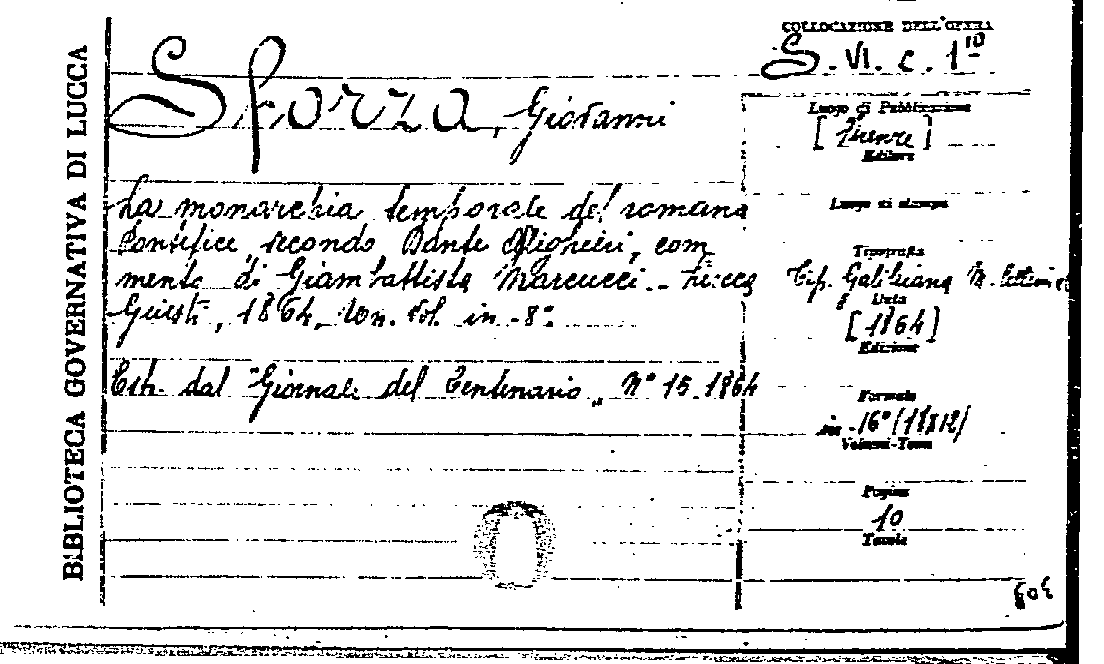 BIBLIOTECA GOVERNATIVA DI LUCCA
Sforza, Giovanni
La monarchia temporale del romano
Pontefice secondo Dante Alighieri, com
mento di Giambattista Marcucci. - Lucca
Giusti, 1864, Un. vol. in -8º
Estr. dal "Giornale del Centenario„ Nº 15 1864
COLLOCAZIONE DELL'OPERA
S. VI. c. 110
Luogo di Pubblicazione
[Firenze]
Editore
Luogo di stampa
Tipografia
Tip. Galileiana M.
Data
[1864]
Edizione
Formato
in -16º (18x12)
Volumi-Tomi
Pagine
10
Tavole